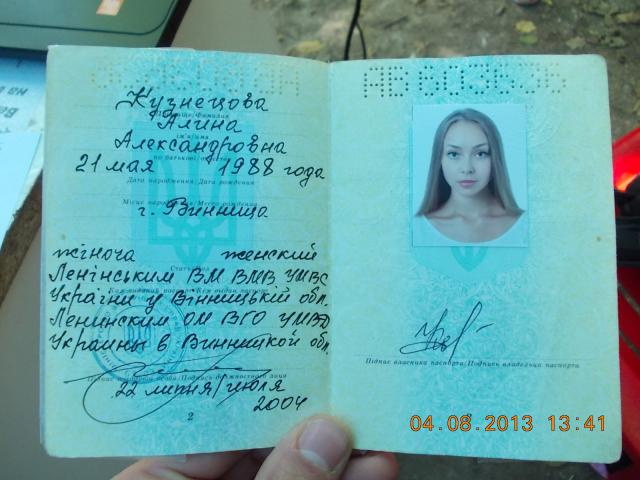 Кузнецова
Прізвище/Фамилия
Алина
ім'я/имя
Александровна
по батькові/отчество
21 мая 1988 года
Дата народження/Дата рождения
Місце народження/Место рождения
г. Винница
жіноча женский
Стать/Пол
Ленінським ВМ ВМВ УМВС
України у Вінницькій обл.
Ленинским ОМ ВГО УМВД
Украины в Винницкой обл.
Підпис посадової особи/Подпись должностного лица
22 липня/июля
2004
2
АВ
Підпис власника паспорта/Подпись владельца паспорта
04.08.2013 13:41